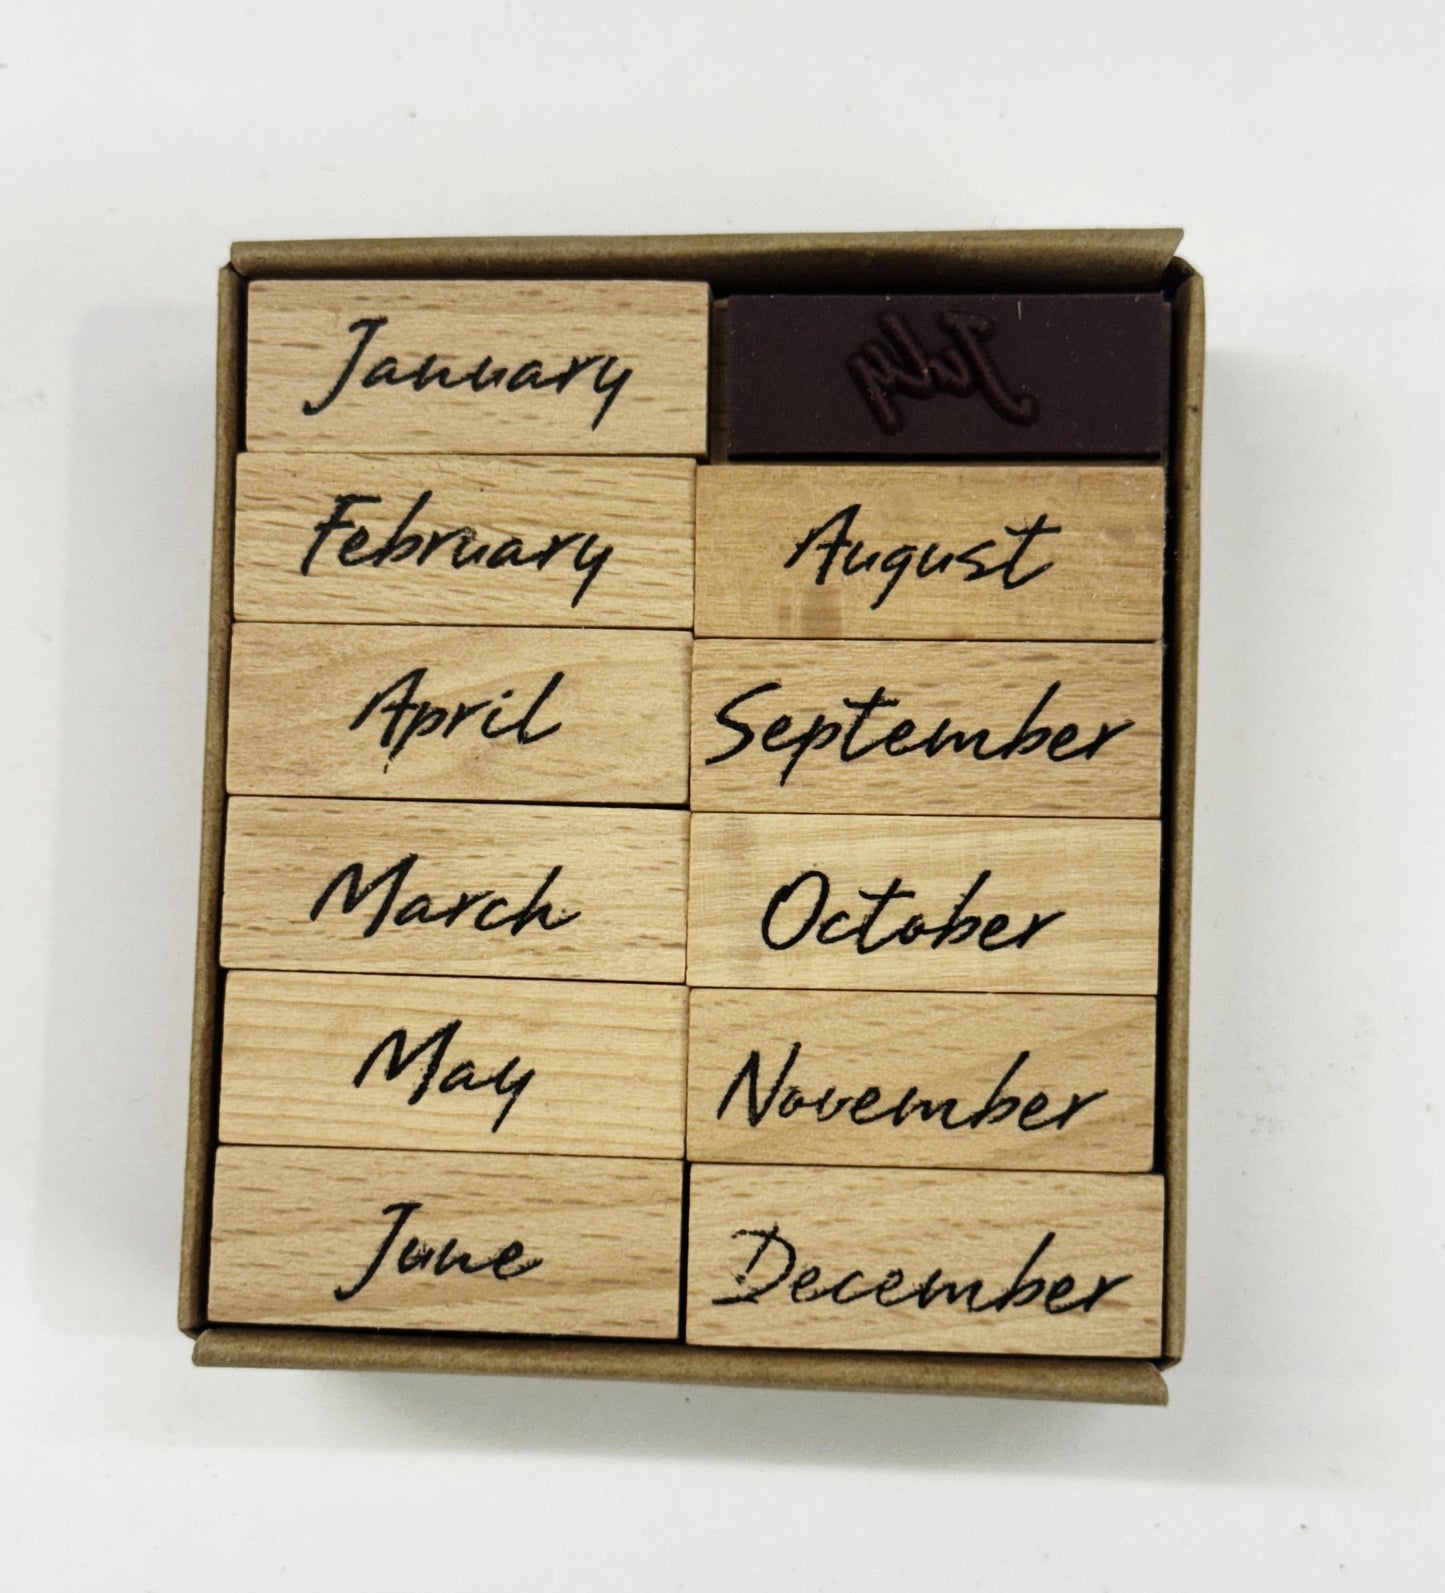 January
February
April
March
May
June
July
August
September
October
November
December